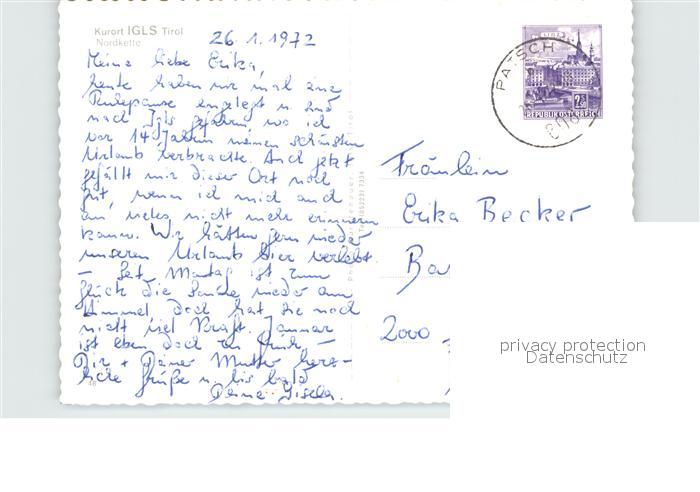 Kurort IGLS Tirol
Nordkette
26.1.1972
Meine liebe Erika,
heute haben wir mal eine
Ruhepause eingelegt u. sind
nach Igls gefahren, wo ich
vor 14 Jahren meinen schönsten
Urlaub verbrachte. Auch jetzt
gefällt mir dieser Ort noch
gut, wenn ich mich auch
an vieles nicht mehr erinnern
kann. Wir hätten gern wieder
unseren Urlaub hier verlebt.
- Seit Montag ist zum
Glück die Sonne wieder am
Himmel, doch hat sie noch
nicht viel Kraft. Januar
ist eben doch zu früh. -
Dir + Deiner Mutter herz-
liche Grüße u. bis bald
Deine Gisela.
46
Tel. (05223) 7334
LINZ
REPUBLIK ÖSTERREICH
PATSCH
Fräulein
Erika Becker
2000
privacy protection
Datenschutz